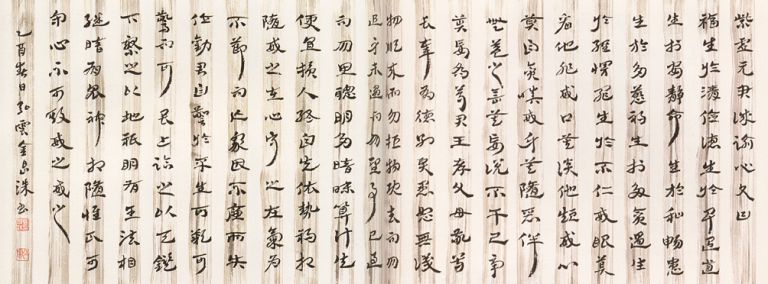 紫虛元君誠諭心文曰
福生於淸儉德生於卑退道
生於安靜命生於和暢患
生於多慾禍生於多貪過生
於輕慢罪生於不仁戒眼莫
看他非戒口莫談他短戒心
莫自貪嗔戒身莫隨惡伴
無益之言莫妄說不干己事
莫妄爲尊君王孝父母敬尊
長奉有德別賢愚恕無識
物順來而勿拒物旣去而勿
追身未遇而勿望事已過
而勿思聰明多暗昧算計失
便宜損人終自失依勢禍相
隨戒之在心守之在氣爲
不節而亡家因不廉而失
位勸君自警於平生可歎可
驚而可畏上臨之以天鑑
下察之以地祇明有王法相
繼暗有鬼神相隨惟正可
守心不可欺戒之戒之
乙酉春日弘雲金洙書